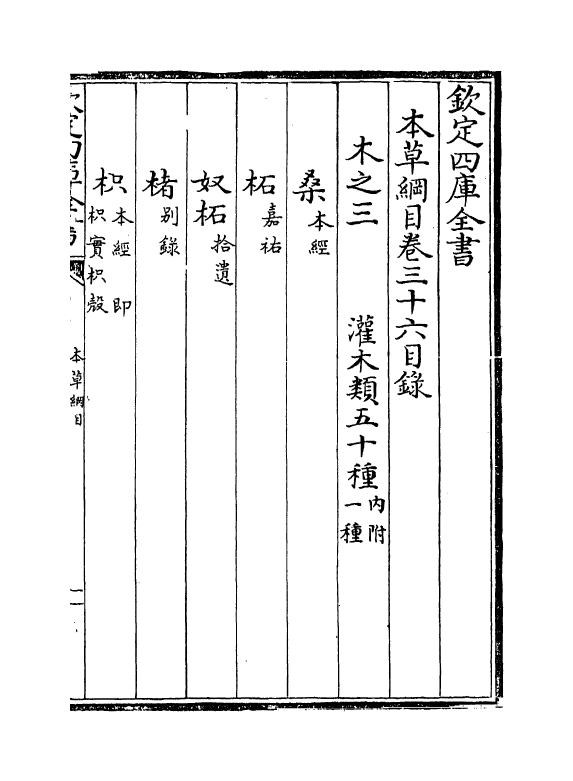 欽定四庫全書
本草綱目卷三十六目錄
木之三 灌木類五十種內附一種
桑本經
柘嘉祐
奴柘拾遺
楮别錄
枳本經即枳實枳殼
本草綱目